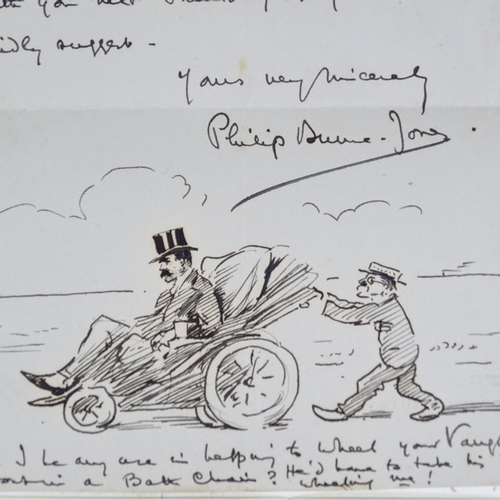 you
kindly suggest -
Yours very sincerely
Philip Burne-Jones.
I be any use in helping to wheel your Vaugh
in a Bath Chair? He'd have to take his
wheeling me!